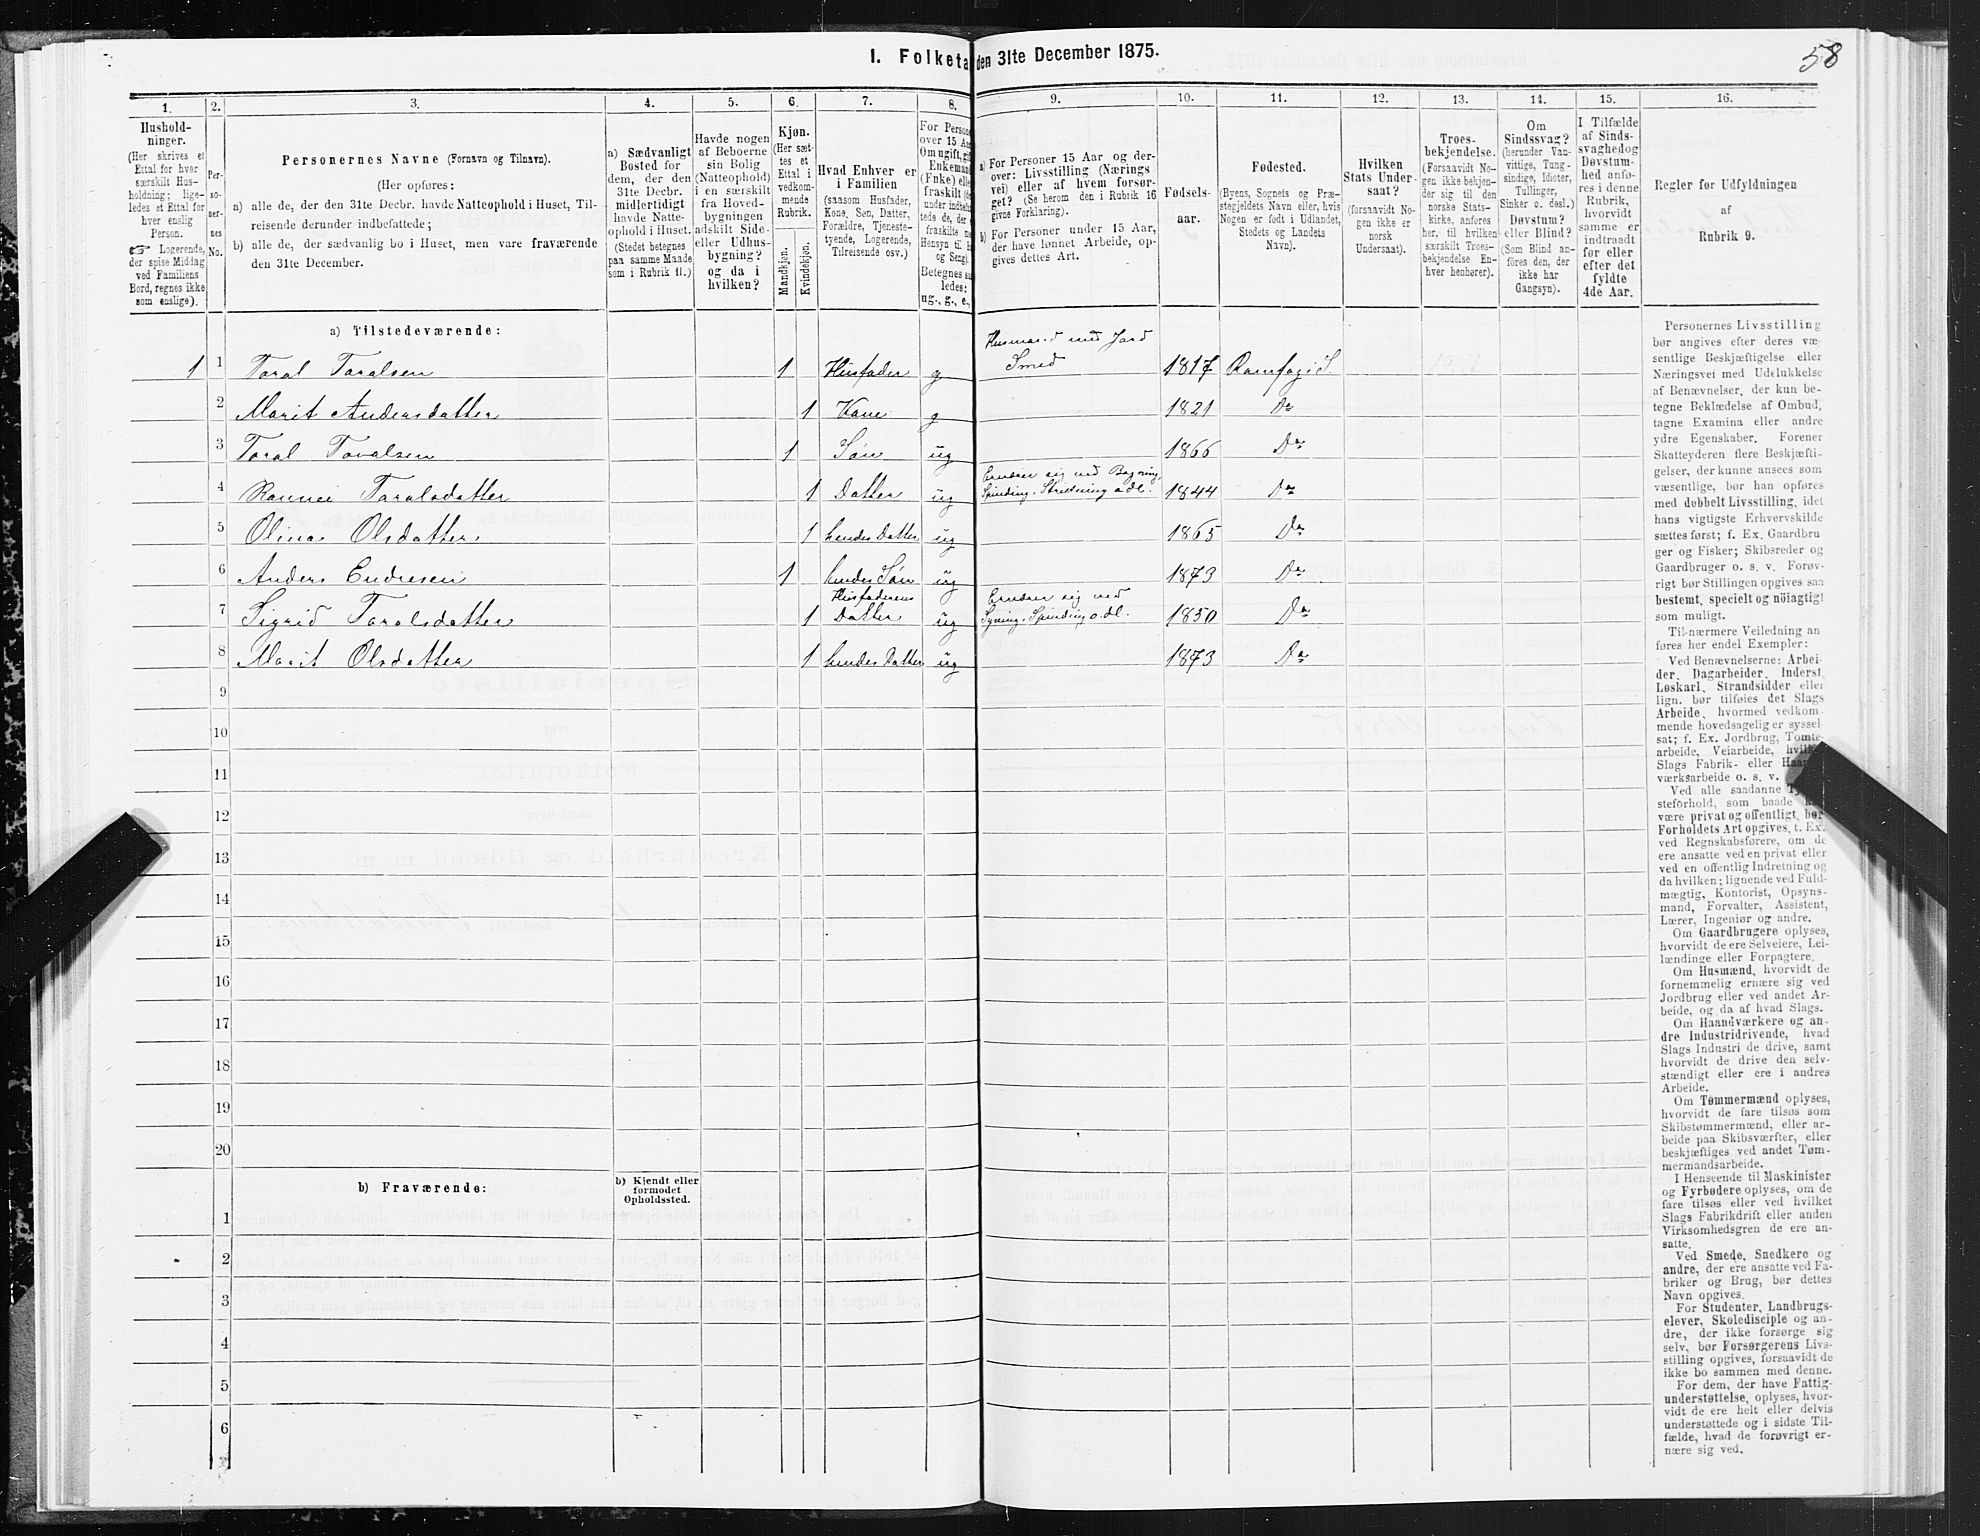 58
I. Folketa
den 31te December 1875.
1.
2.
3.
4.
5.
6.
7.
8.
9.
10.
11.
12.
13.
14.
15.
16.
Hushold-
ninger.
(Her skrives et
Ettal for hver
særskilt Hus-
holdning; lige-
ledes et Ettal for
hver enslig
Person.
☞ Logerende,
der spise Middag
ved Familiens
Bord, regnes ikke
som enslige).
Per-
so-
ner-
nes
No.
Personernes Navne (Fornavn og Tilnavn).
(Her opføres:
a) alle de, der den 31te Decbr. havde Natteophold i Huset, Til-
reisende derunder indbefattede;
b) alle de, der sædvanlig bo i Huset, men vare fraværende
den 31te December.
a) Sædvanligt
Bosted for
dem, der den
31te Decbr.
midlertidigt
havde Natte-
ophold i Huset.
(Stedet betegnes
paa samme Maade
som i Rubrik 11.)
Havde nogen
af Beboerne
sin Bolig
(Natteophold)
i en særskilt
fra Hoved-
bygningen
adskilt Side-
eller Udhus-
bygning?
og da i
hvilken?
Kjøn.
(Her sæt-
tes et
Ettal i
vedkom-
mende
Rubrik.
Mandkjøn.
Kvindekjøn.
Hvad Enhver er
i Familien
(saasom Husfader,
Kone, Søn, Datter,
Forældre, Tjeneste-
tyende, Logerende,
Tilreisende osv.)
For Persone
over 15 Aa
Om ugift, gif
Enkeman
(Enke) elle
fraskilt (de
under indbe
tede de, der e
fraskilte n
Hensyn til B
og Seng).
Betegnes sa
ledes:
ug., g., e.,
a) For Personer 15 Aar og der-
over: Livsstilling (Nærings
vei) eller af hvem forsør-
get? (Se herom den i Rubrik 16
givne Forklaring).
b) For Personer under 15 Aar,
der have lønnet Arbeide, op-
gives dettes Art.
Fødsels-
aar.
Fødested.
(Byens, Sognets og Præ-
stegjeldets Navn eller, hvis
Nogen er født i Udlandet,
Stedets og Landets
Navn).
Hvilken
Stats Under-
saat?
(forsaavidt No-
gen ikke er
norsk
Undersaat).
Troes-
bekjendelse.
(Forsaavidt No-
gen ikke bekjen-
der sig til den
norske Stats-
kirke, anføres
her, til hvilken
særskilt Troes-
bekjendelse En-
hver henhører).
Om
Sindssvag?
(herunder Van-
vittige, Tung-
sindige, Idioter,
Tullinger,
Sinker o. desl.)
Døvstum?
eller Blind?
(Som Blind an-
føres den, der
ikke har
Gangsyn).
I Tilfælde
af Sinds-
svaghed og
Døvstum-
hed anfø-
res i denne
Rubrik,
hvorvidt
samme er
indtraadt
før eller
efter det
fyldte
4de Aar.
Regler for Udfyldningen
af
Rubrik 9.
a) Tilstedeværende:
Husmand med Jord
1 1 Toral Toralsen 1 Husfader g Smed 1817 Romfogid S.
2 Marit Andersdatter 1 Kone g 1821 Do
3 Toral Toralsen 1 Søn ug 1866 Do
4 Rannei Toralsdatter 1 Datter ug Ernærer sig ved Bagning, Spinding, Strikning o.dl. 1844 Do
5 Olina Olsdatter 1 hendes Datter ug 1865 Do
6 Anders Endresen 1 hendes Søn ug 1873 Do
7 Sigrid Toralsdatter 1 Husfaderens Datter ug Ernærer sig ved Syning, Spinding o.dl. 1850 Do
8 Marit Olsdatter 1 hendes Datter ug 1873 Do
9
10
11
12
13
14
15
16
17
18
19
20
b) Fraværende:
b) Kjendt eller
formodet
Opholdssted.
1
2
3
4
5
6
Personernes Livsstilling
bør angives efter deres væ-
sentlige Beskjæftigelse eller
Næringsvei med Udelukkelse
af Benævnelser, der kun be-
tegne Beklædelse af Ombud,
tagne Examina eller andre
ydre Egenskaber. Forener
Skatteyderen flere Beskjæfti-
gelser, der kunne ansees som
væsentlige, bør han opføres
med dobbelt Livsstilling, idet
hans vigtigste Erhvervskilde
sættes først; f. Ex. Gaardbru
ger og Fisker; Skibsreder og
Gaardbruger o. s. v. Forøv-
rigt bør Stillingen opgives saa
bestemt, specielt og nöiagtigt
som muligt.
Til nærmere Veiledning an
føres her endel Exempler:
Ved Benævnelserne: Arbei-
der, Dagarbeider, Inderst,
Løskarl, Strandsidder eller
lign. bør tilføies det Slags
Arbeide, hvormed vedkom-
mende hovedsagelig er syssel-
sat; f. Ex. Jordbrug, Tomte-
arbeide, Veiarbeide, hvilk
Slags Fabrik- eller Haan
værksarbeide o. s. v.
Ved alle saadanne Tj
steforhold, som baade k
være privat og offentligt, bør
Forholdets Art opgives, t. Ex.
ved Regnskabsførere, om de
ere ansatte ved en privat eller
ved en offentlig Indretning og
da hvilken; lignende ved Fuld-
mægtig, Kontorist, Opsyns-
mand, Forvalter, Assistent,
Lærer, Ingeniør og andre.
Om Gaardbrugere oplyses,
hvorvidt de ere Selveiere, Lei-
lændinge eller Forpagtere.
Om Husmænd, hvorvidt de
fornemmelig ernære sig ved
Jordbrug eller ved andet Ar-
beide, og da af hvad Slags.
Om Haandværkere og an-
dre Industridrivende, hvad
Slags Industri de drive, samt
hvorvidt de drive den selv-
stændigt eller ere i andres
Arbeide.
Om Tømmermænd oplyses,
hvorvidt de fare tilsøs som
Skibstømmermænd, eller ar-
beide paa Skibsværfter, eller
beskjæftiges ved andet Tøm-
mermandsarbeide.
I Henseende til Maskinister
og Fyrbødere oplyses, om de
fare tilsøs eller ved hvilket
Slags Fabrikdrift eller anden
Virksomhedsgren de ere an-
satte.
Ved Smede, Snedkere og
andre, der ere ansatte ved Fa-
briker og Brug, bør dettes
Navn opgives.
For Studenter, Landbrugs-
elever, Skoledisciple og an-
dre, der ikke forsørge sig
selv, bør Forsørgerens Livs-
stilling opgives, forsaavidt de
ikke bo sammen med denne.
For dem, der have Fattig-
understøttelse, oplyses, hvor-
vidt de ere helt eller delvis
understøttede og i sidste Til-
fælde, hvad de forøvrigt er-
nære sig ved.